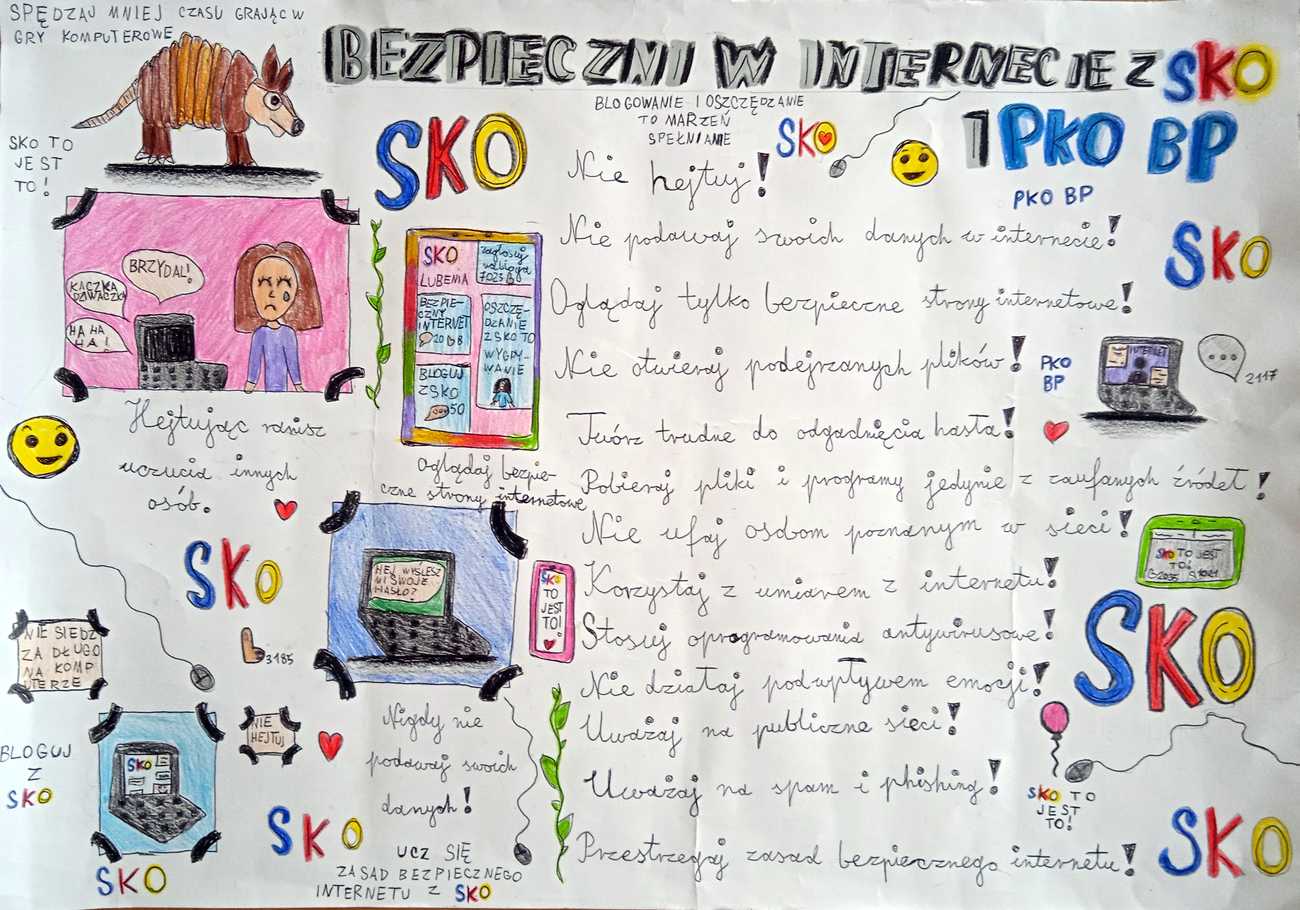 SPĘDZAJ MNIEJ CZASU GRAJĄC W
GRY KOMPUTEROWE
SKO TO
JEST
TO!
BEZPIECZNI W INTERNECIE Z SKO
I PKO BP
PKO BP
BLOGOWANIE I OSZCZĘDZANIE
TO MARZEŃ
SPEŁNIANIE
SKO
SKO
BRZYDAL!
KACZKA
DZIWACZKA
HA HA
HA!
Hejtując ranisz
uczucia innych
osób.
SKO
LUBENIA
zagłosuj
na bloga
7023
BEZPIE-
CZNY
INTERNET
20 8
BLOGUJ
Z SKO
50
OSZCZĘ-
DZANIE
Z SKO TO
WYGRY-
WANIE
Oglądaj bezpie-
czne strony internetowe
HEJ WYŚLESZ
MI SWOJE
HASŁO?
SKO
TO
JEST
TO!
SKO
3185
NIE SIEDZ
ZA DŁUGO
NA KOMP
UTERZE
NIE
HEJTUJ
BLOGUJ
Z
SKO
SKO
SKO
Nigdy nie
podawaj swoich
danych!
SKO
UCZ SIĘ
ZASAD BEZPIECZNEGO
INTERNETU Z SKO
Nie hejtuj!
Nie podawaj swoich danych w internecie!
Oglądaj tylko bezpieczne strony internetowe!
Nie otwieraj podejrzanych plików!
Twórz trudne do odgadnięcia hasła!
Pobieraj pliki i programy jedynie z zaufanych źródeł!
Nie ufaj osobom poznanym w sieci!
Korzystaj z umiarem z internetu!
Stosuj oprogramowania antywirusowe!
Nie działaj pod wpływem emocji!
Uważaj na publiczne sieci!
Uważaj na spam i phishing!
Przestrzegaj zasad bezpiecznego internetu!
SKO
PKO
BP
INTERNET
2117
SKO TO JEST
TO!
SKO
SKO TO
JEST
TO!
SKO